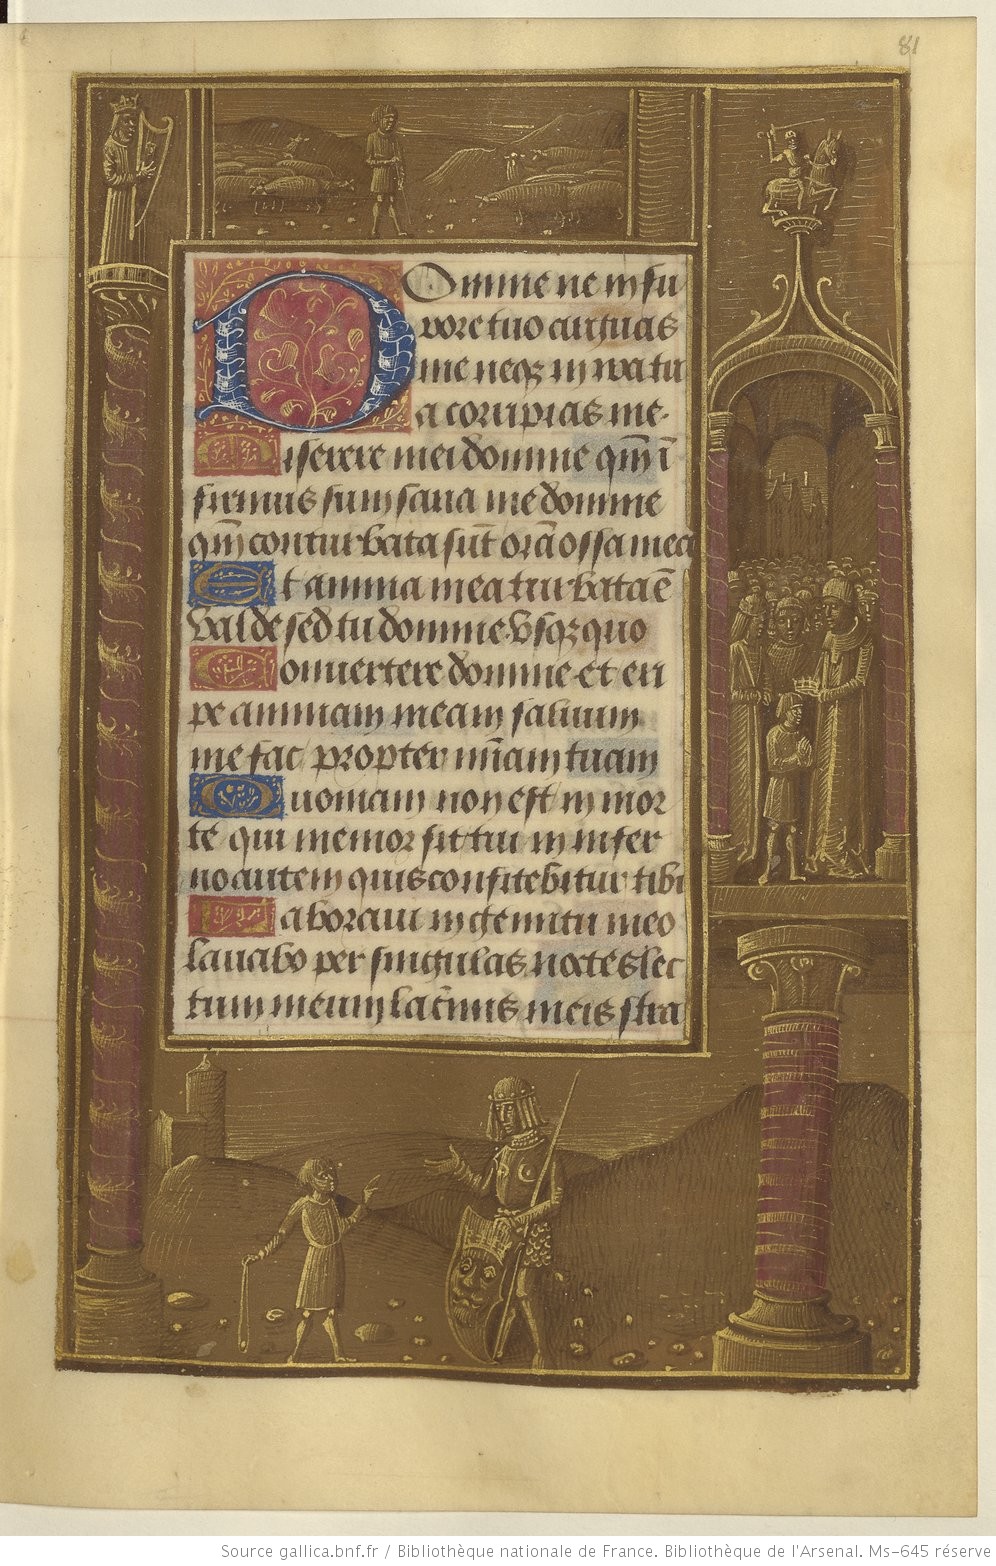 81
Domine ne in fu
rore tuo arguas
me neqz in ira tu
a corripias me.
Miserere mei domine qm̄ ī
firmus sum sana me domine
qm̄ conturbata sūt oīa ossa mea
Et anima mea turbata ē
valde sed tu domine vsqz quo
Conuertere domine et eri
pe animam meam saluum
me fac propter mīam tuam
Quoniam non est in mor
te qui memor sit tui in infer
no autem quis confitebitur tibi
Laboraui in gemitu meo
lauabo per singulas noctes lec
tum meum lac̄mis meis stra
Source gallica.bnf.fr / Bibliothèque nationale de France. Bibliothèque de l'Arsenal. Ms-645 réserve